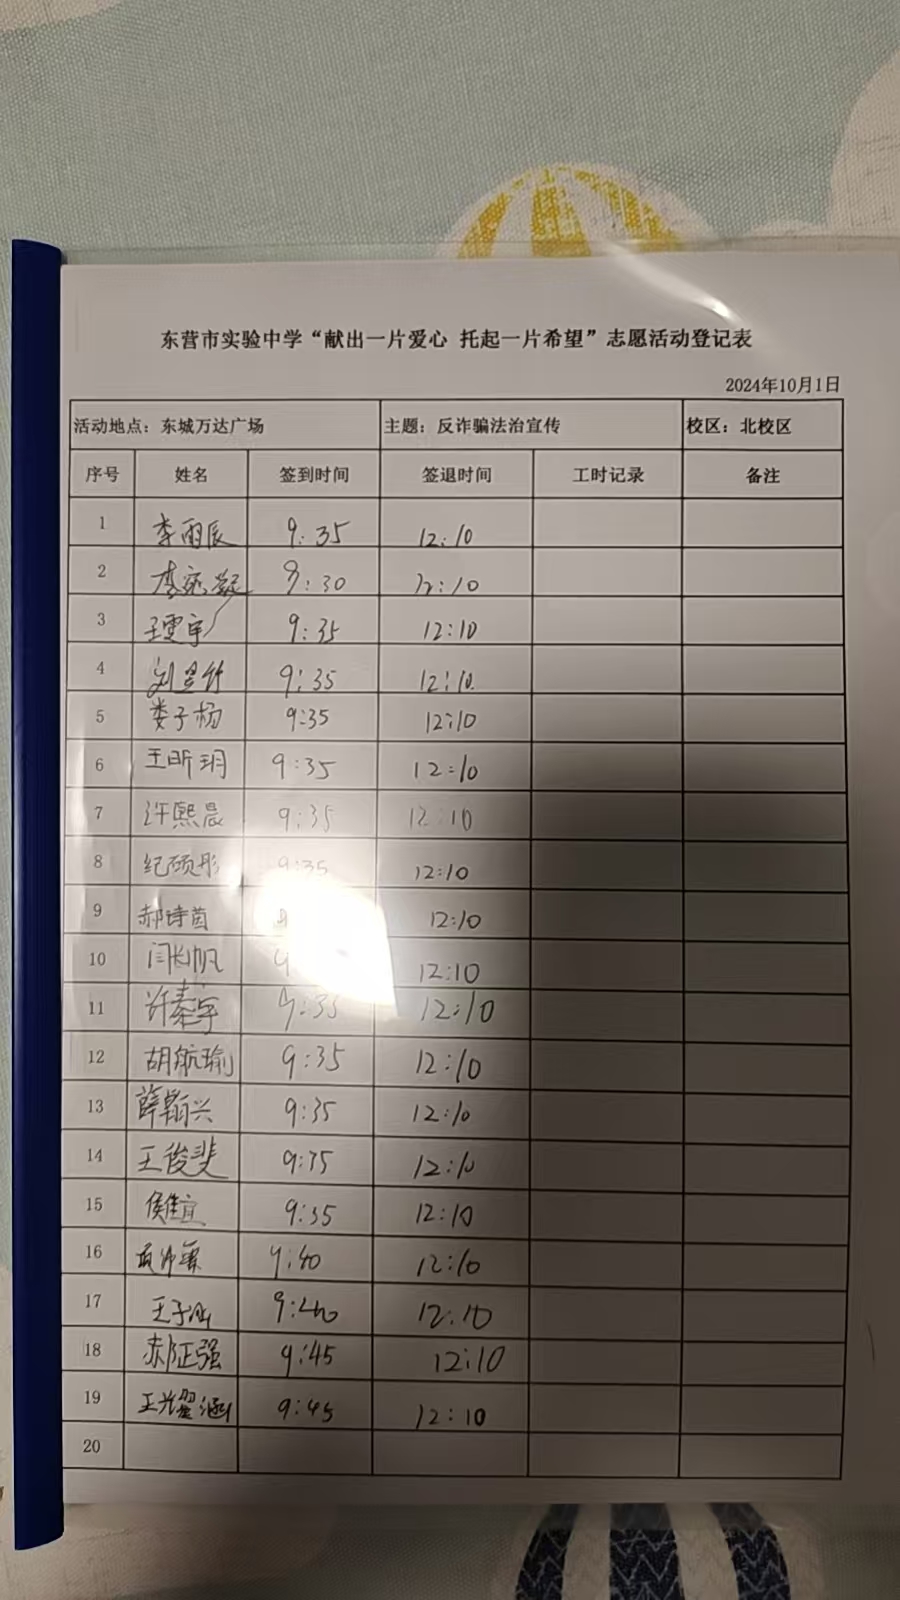 东营市实验中学“献出一片爱心 托起一片希望”志愿活动登记表
2024年10月1日
活动地点：东城万达广场 主题：反诈骗法治宣传 校区：北校区
序号 姓名 签到时间 签退时间 工时记录 备注
1 李雨辰 9:35 12:10
2 李 9:30 12:10
3 王雯宇 9:35 12:10
4 刘昱竹 9:35 12:10
5 娄子杨 9:35 12:10
6 王昕玥 9:35 12:10
7 许熙晨 9:35 12:10
8 纪硕彤 9:35 12:10
9 郝诗茵 12:10
10 闫长帆 9 12:10
11 许秦宇 9:35 12:10
12 胡航瑜 9:35 12:10
13 薛翰兴 9:35 12:10
14 王俊斐 9:35 12:10
15 侯佳宜 9:35 12:10
16 9:40 12:10
17 王子 9:40 12:10
18 郝正强 9:45 12:10
19 王耀涵 9:45 12:10
20